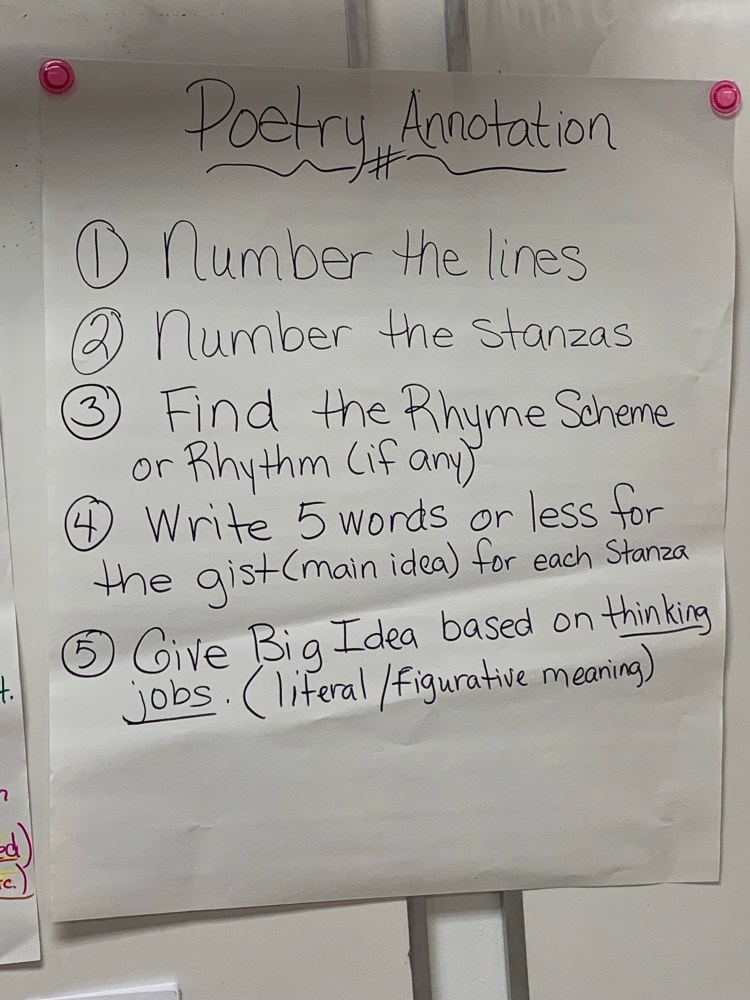 Poetry Annotation
#
① Number the lines
② Number the Stanzas
③ Find the Rhyme Scheme
or Rhythm (if any)
④ Write 5 words or less for
the gist (main idea) for each Stanza
⑤ Give Big Idea based on thinking
jobs. (literal/figurative meaning)
t.
ed)